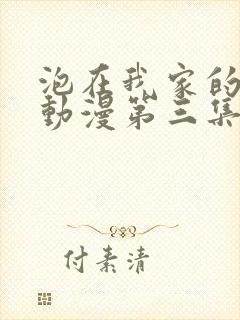 泡在我家的
動漫第三集
付素清